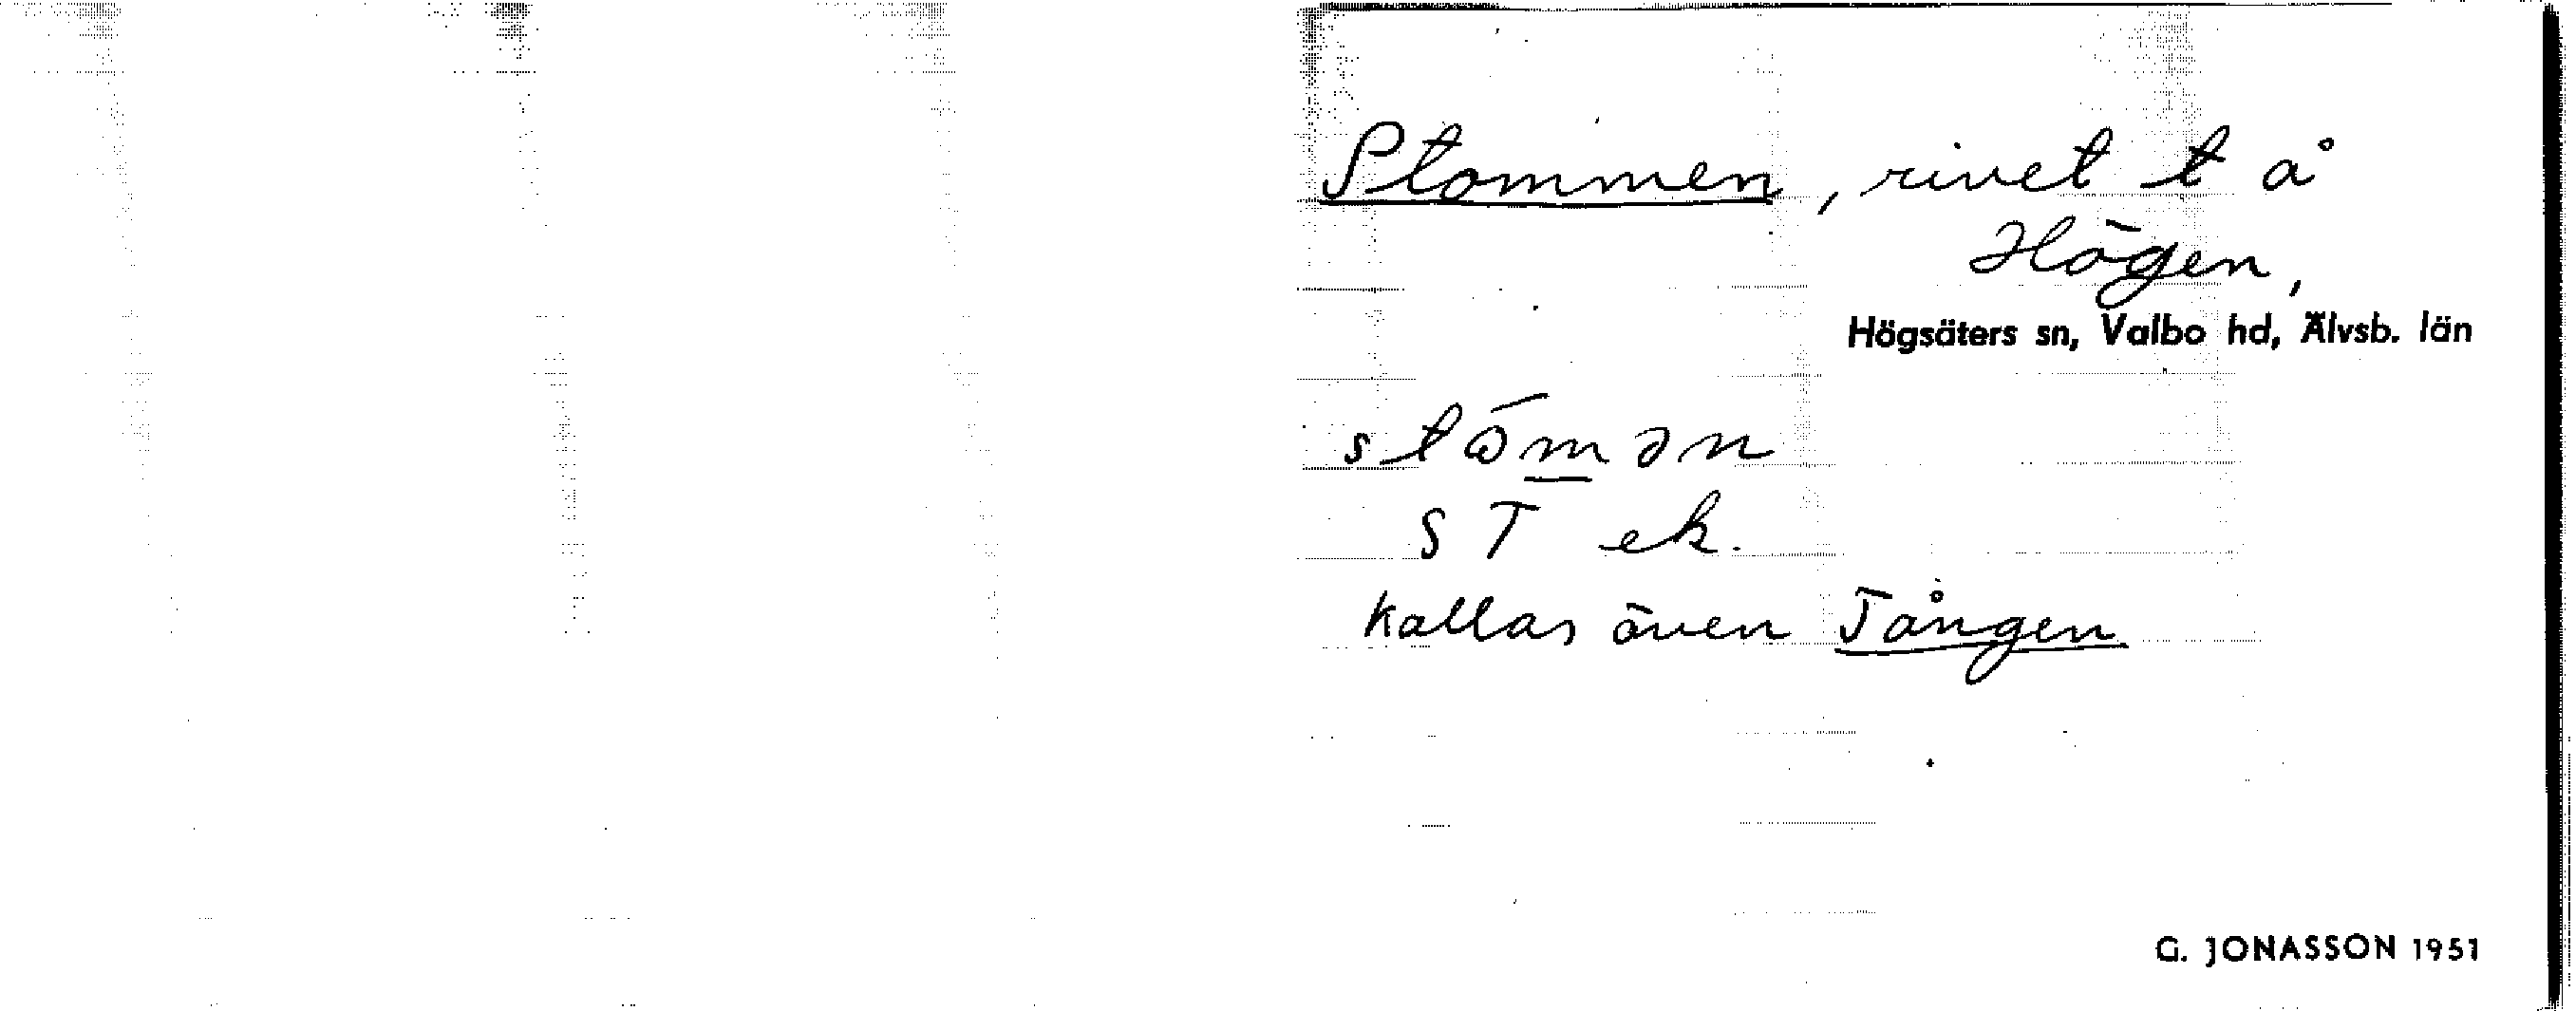 Stommen, rivet t å
Högen,
Högsäters sn, Valbo hd, Älvsb. län
stömən
S T ek.
kallas även Tången
G. JONASSON 1951